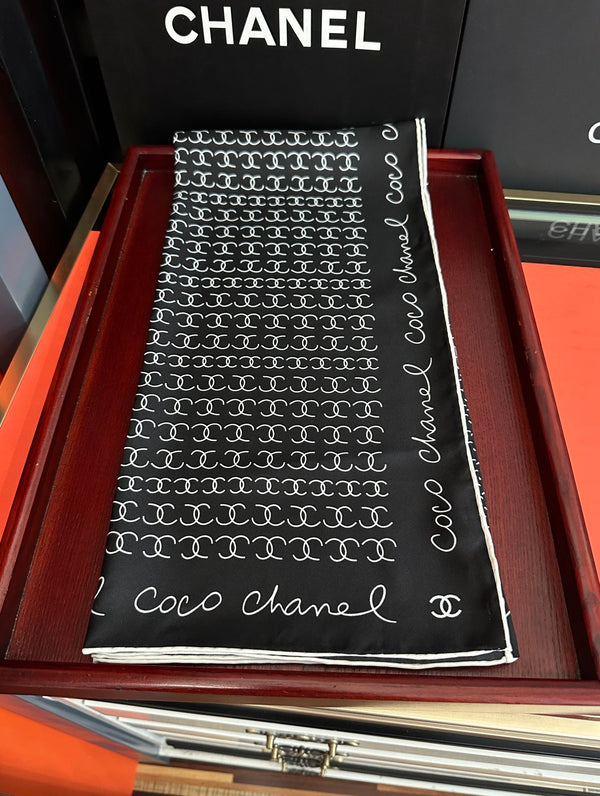 CHANEL
C
CHA
coco
coco chanel
coco chanel
coco chanel
CHANEL